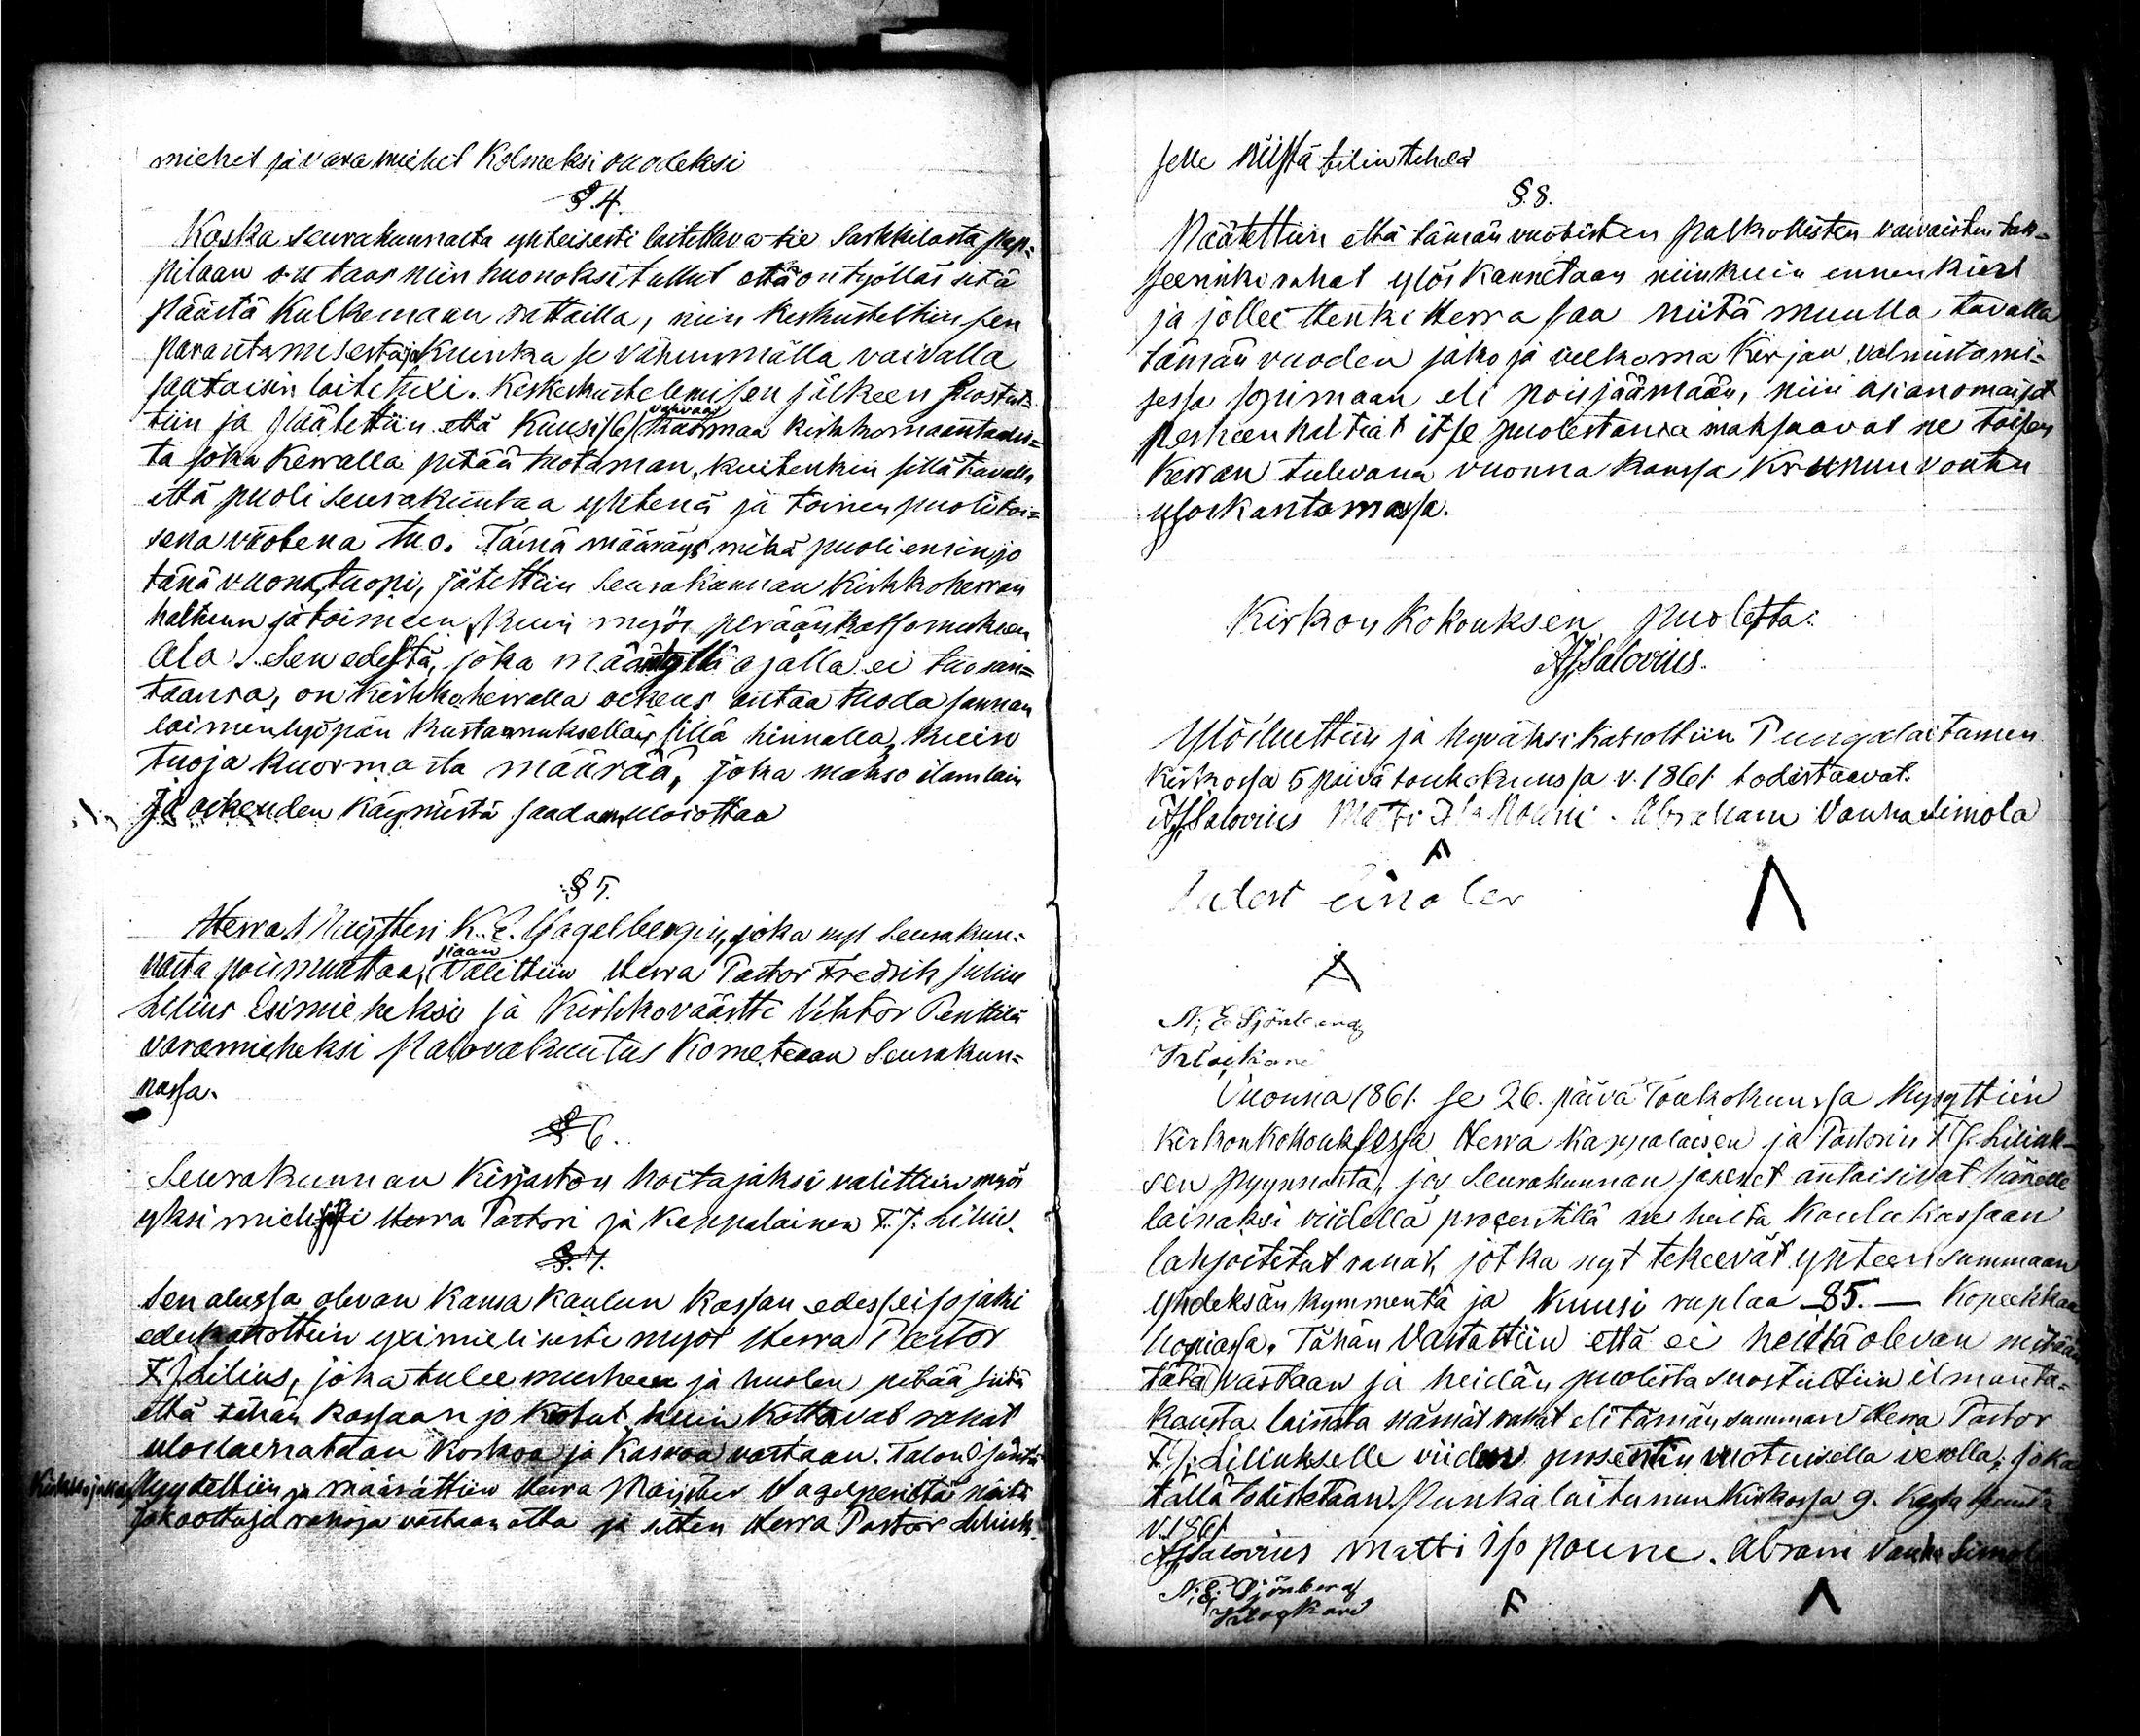 miehet ja varamiehet Kolmeksi vuodeksi
§.4.
Koska seurakunnalta yhteisesti laitettava tie Sarkkilasta Pap=
pilaan on taas niin huonoksi tullut että on työlläs sitä
päästä Kulkemaan rattailla, niin keskusteltiin sen
parantamisesta ja Kuinka se vähimmällä vaivalla
saataisin laitetuxi. Keskenkustelemisen jälkeen suostut=
tiin ja päätettiin että Kuusi (6) vahvaa kuormaa kirkkomaantadis=
ta joka Kerralla pitää tuotaman, kuitenkin sillä tavalla
että puoli seurakuntaa yhtenä ja toinen puoli toi=
sena vuotena tuo. Tämä määräys mikä puoli ensin jo
tänä vuona tuopi, jätettiin Seurakunnan Kirkkoherran
haltuun ja toimeen kuin myös peräänkatsomuksen
ala. Sen edestä, joka määrätyllä ajalla ei tuo san=
taansa, on Kirkkoherralla oikeus antaa tuoda sannan
laiminlyöpän kustannuksellais sillä hinnalla, kuin
tuoja kuormasta määrää, joka makso ilman lain
ja oikeuden käymistä saadaan ulosottaa
§ 5.
Herra Maijsteri K. E. Hagelbergin, joka nyt Seurakun=
nasta poismuuttaa, siaan Valittiin Herra Pastor Fredrik Julius
Lilius Esimieheksi ja Kirkkoväärtti Viktor Penttilä
varamieheksi Palovakuutus Kometeaan Seurakun=
nassa.
§ 6.
Seurakunnan Kirjaston hoitajaksi valittiin myös
yksimielisesti Herra Pastori ja Kappalainen F. J. Lilius.
§.7.
Sen alussa olevan Kansa Koulun Kassan edesseisojaksi
edeskatsottiin yximielisesti myös Herra Pastor
F. J. Lilius, joka tulee murheen ja huolen pitää siitä
että tähän kassaan jo kootut kuin koottavat rahat
uloslainataan Korkoa ja Kasvoa vastaan. Talon
Pyydettiin ja määrättiin Herra Maijster Hagelperiltä näitä
rahoja vastaan otta ja sitten Herra Pastor Liliuk=
selle niistä tilin tehdä
§.8.
Päätettiin että tämän vuotisten palkollisten vaivaisten tak=
seerinki rahat ylöskannetaan niinkuin ennenkin
ja jollei Henki Herra saa niitä muulla tavalla
tämän vuoden jako ja ulkoma Kirjan valmistami=
sessa sopimaan eli poisjäämään, niin asianomaiset
perheenhaltiat itse puolestansa maksaavat ne toisen
kerran tulevana vuonna kanssa Kruunun voutin
ylöskantamassa.
Kirkon Kokouksen puolesta:
AJSalovius.
Ylösluettiin ja hyväksi katsottiin Pungalaitumen
Kirkossa 5 päivä toukokuussa v. 1861 todistaavat.
AJSalovius Matti Iso Nouni. Abraham Vanha Simola
N. E. Sjönberg
Klockare
Vuonna 1861. se 26. päivä Toukokuussa kysyttiin
Kirkonkokouksessa Herra Kappalaisen ja Pastorin F. J. Liliuk=
sen pyynnöstä, jos Seurakunnan jäsenet antaisivat hänelle
lainaksi viidellä procentillä ne heiltä Koulu kassaan
lahjoitetut rahat, jotka nyt tekeevät yhteen summaan
Yhdeksänkymmentä ja Kuusi ruplaa 85.— Kopeekkaa
hopiassa. Tähän Vastattiin että ei heillä olevan mitään
tätä vastaan ja heidän puolesta suostuttiin ilmanta=
kausta lainata nämät rahat eli tämän summan Herra Pastor
F. J. Liliukselle viiden prosentin vuotuisella verolla, joka
tällä todistetaan. Punkalaitumen Kirkossa 9. Kesä kuuta
v. 1861.
AJSalovius Matti Iso poune. Abram Vanha Simola
N. E. Sjönberg
Klockare